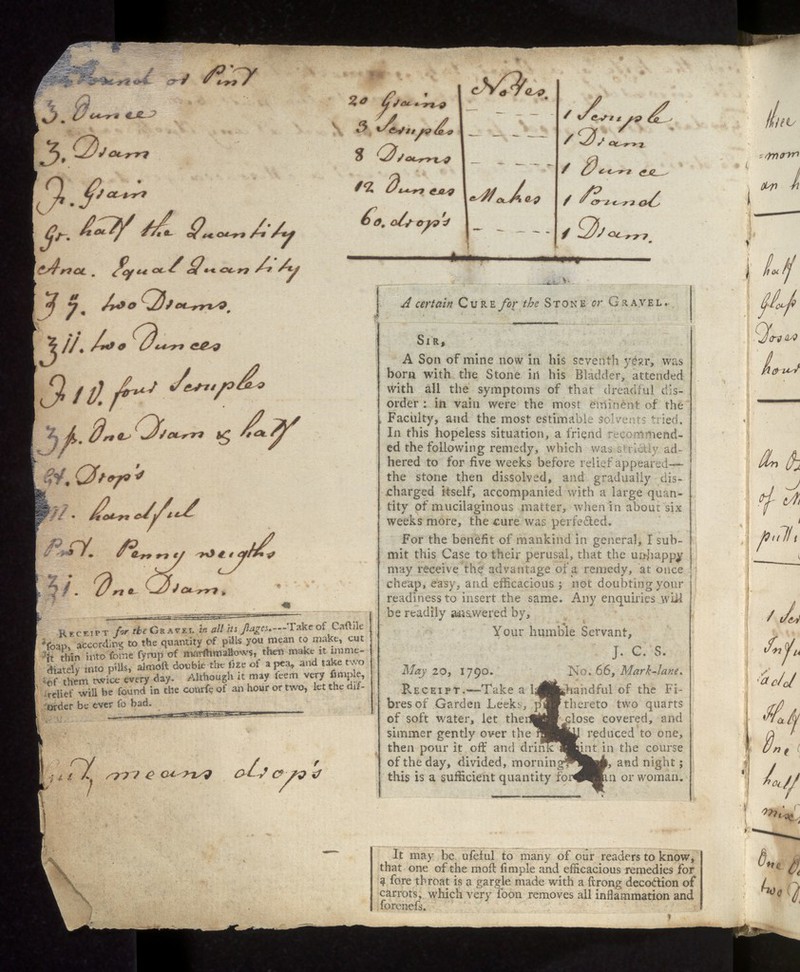 or Pint
℥. Ounce
ʒ. Dram
Grain
Gr. half the Quantity
Ana. Equal Quantity
two Drams.
℥ij. two Ounces
℈ IV. four Scruples
ʒß. One Dram & half
Drops
handful
Penny weights
ʒi. One Dram.
RECEIPT for the GRAVEL in all its ſtages.—Take of Caſtile
ſoap, according to the quantity of pills you mean to make, cut
it thin into ſome ſyrup of marſhmallows, then make it imme-
diately into pills, almoſt double the ſize of a pea, and take two
of them twice every day. Although it may ſeem very ſimple,
relief will be found in the courſe of an hour or two, let the diſ-
order be ever ſo bad.
means drops
Notes.
20 Grains — 1 Scruple
3 Scruples — 1 Dram
8 Drams — 1 Ounce
12 Ounces Makes 1 Pound
60. drops — 1 Dram.
A certain CURE for the STONE or GRAVEL.
SIR,
A Son of mine now in his seventh year, was
born with the Stone in his Bladder, attended
with all the symptoms of that dreadful dis-
order : in vain were the most eminent of the
Faculty, and the most estimable solvents tried.
In this hopeless situation, a friend recommend-
ed the following remedy, which was strictly ad-
hered to for five weeks before relief appeared—
the stone then dissolved, and gradually dis-
charged itself, accompanied with a large quan-
tity of mucilaginous matter, when in about six
weeks more, the cure was perfected.
For the benefit of mankind in general, I sub-
mit this Case to their perusal, that the unhappy
may receive the advantage of a remedy, at once
cheap, easy, and efficacious ; not doubting your
readiness to insert the same. Any enquiries will
be readily answered by,
Your humble Servant,
J. C. S.
May 20, 1790. No. 66, Mark-lane.
RECEIPT.—Take a handful of the Fi-
bres of Garden Leeks, thereto two quarts
of soft water, let close covered, and
simmer gently over the reduced to one,
then pour it off and drink in the course
of the day, divided, morning, and night ;
this is a sufficient quantity or woman.
It may be uſeful to many of our readers to know,
that one of the moſt ſimple and efficacious remedies for
a ſore throat is a gargle made with a ſtrong decoction of
carrots, which very ſoon removes all inflammation and
ſoreneſs.
three
an
half
Glaſs
Doses
hour
An
of
add
Half
One
half
One
two